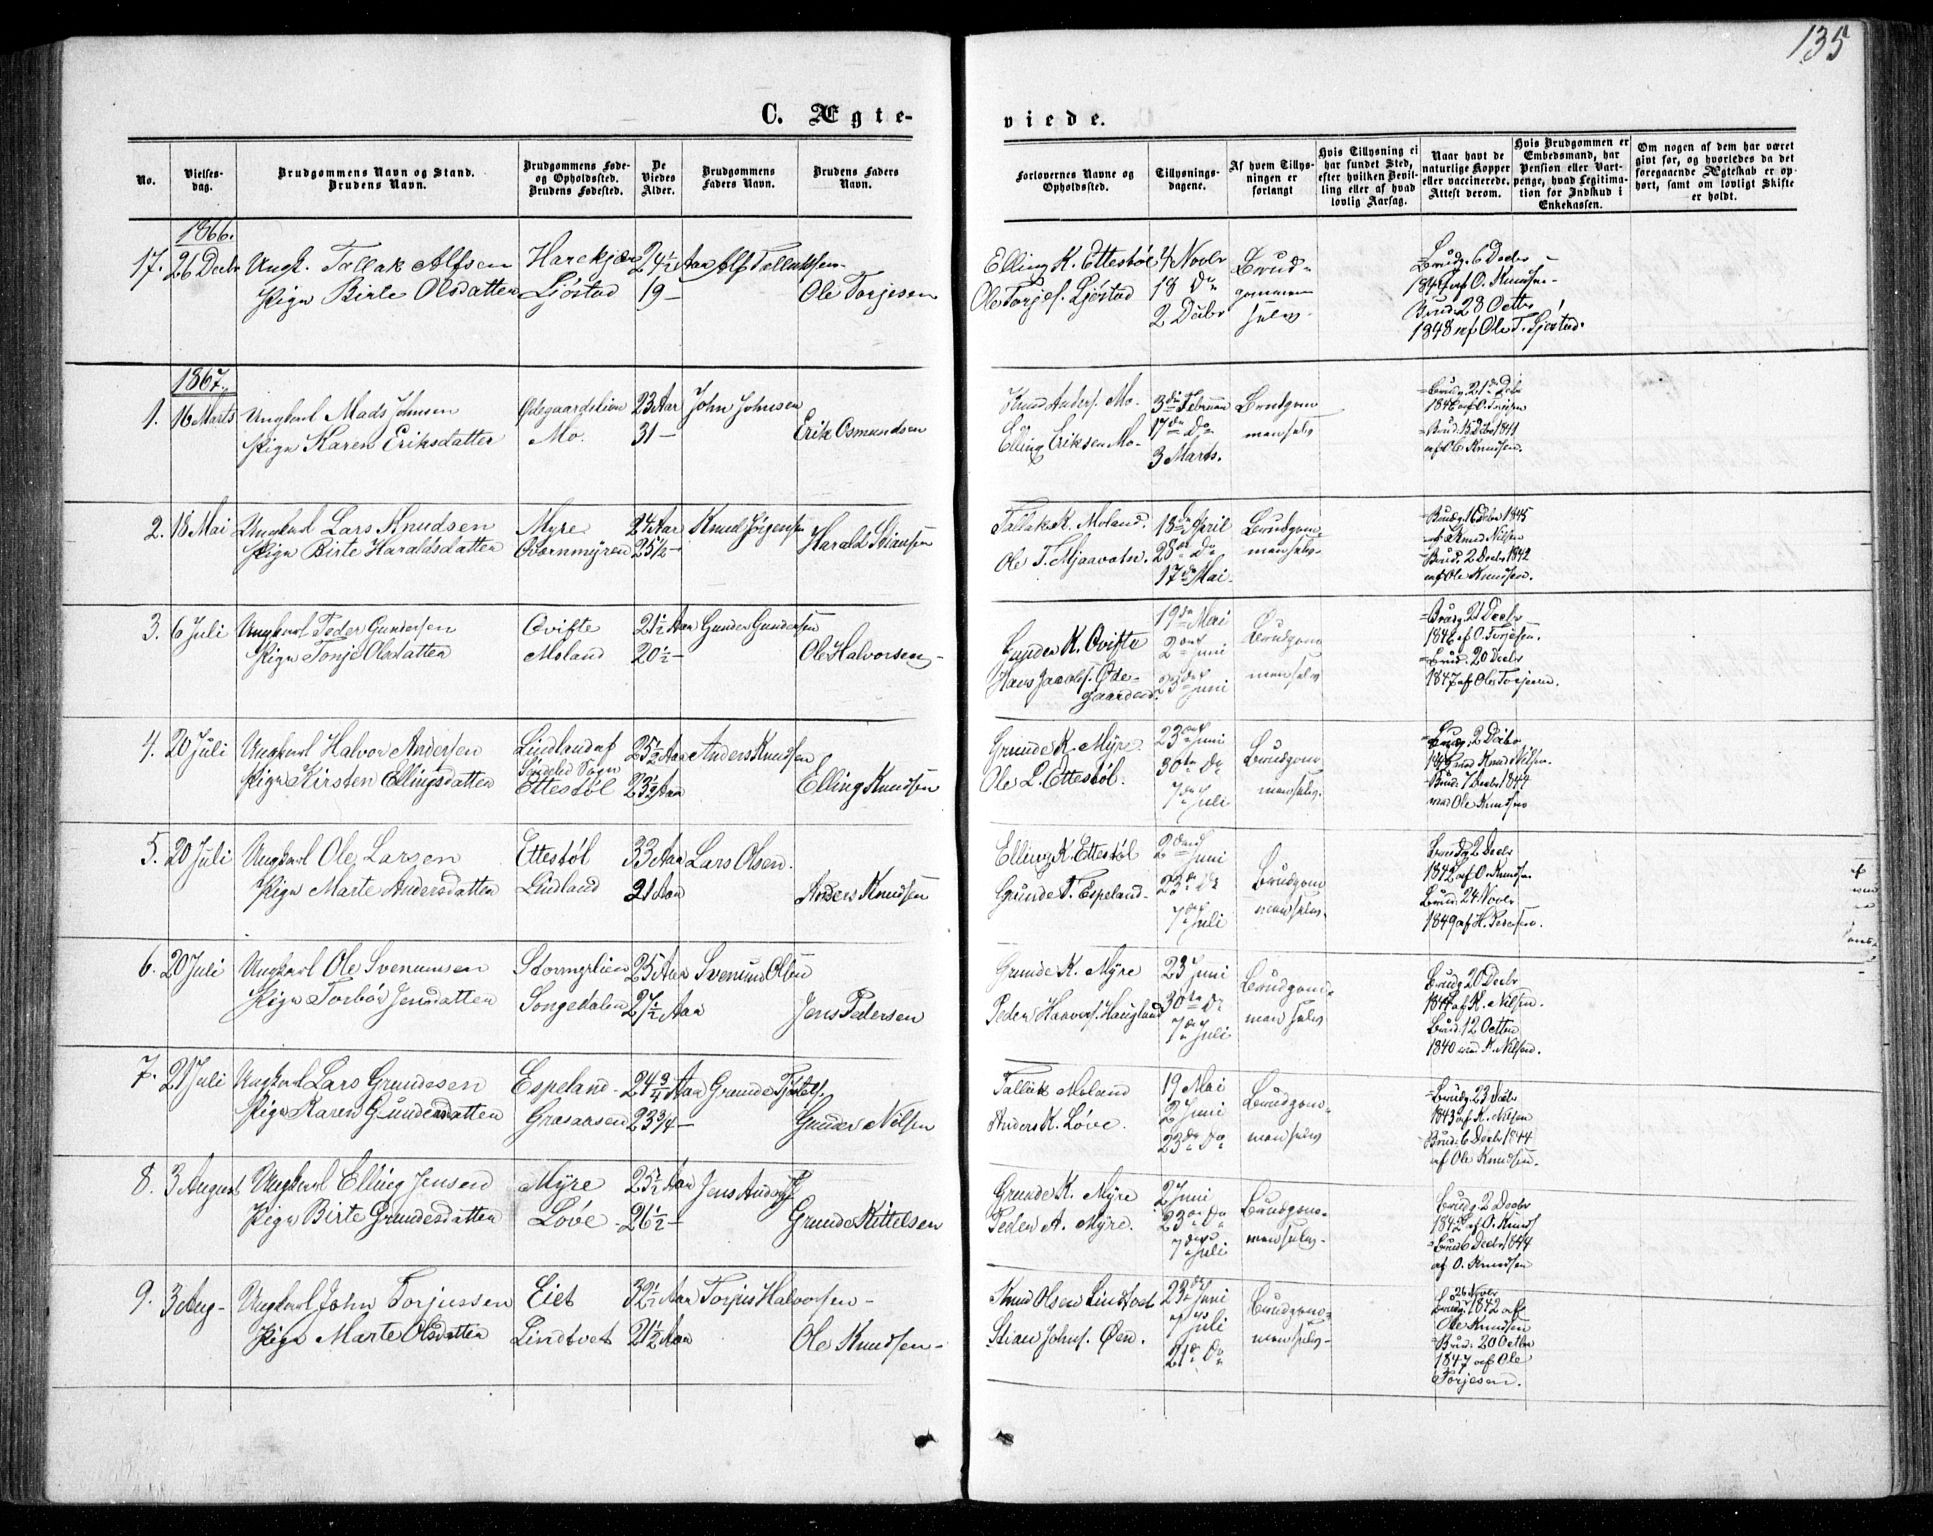 135
C. Ægte-
viede.
No.
Vielses-
dag.
Brudgommens Navn og Stand.
Brudens Navn.
Brudgommens Føde-
og Opholdssted.
Brudens Fødested.
De
Viedes
Alder.
Brudgommens
Faders Navn.
Brudens Faders
Navn.
Forlovernes Navne og
Opholdssted.
Tillysnings-
dagene.
Af hvem Tillys-
ningen er
forlangt
Hvis Tillysning ei
har fundet Sted,
efter hvilken Bevil-
ling eller af hvad
lovlig Aarsag.
Naar havt de
naturlige Kopper
eller vaccinerede.
Attest derom.
Hvis Brudgommen er
Embedsmand, har
Pension eller Vart-
penge, hvad Legitima-
tion for Indskud i
Enkekassen.
Om nogen af dem har været
givt før, og hvorledes da det
foregaaende Ægteskab er op-
hørt, samt om lovligt Skifte
er holdt.
1866.
17. 26 Decbr Ungk. Tallak Alfsen Harekjær 24½ Aar Alf Tallaksen-
Pige Birte Olsdatter Ljøstad 19 – Ole Torjesen
Elling K. Ettestøl 4 Novbr Brud-
Ole Torjes. Ljøstad 18 Do gommen
2 Decbr selv
Brudg. 6 Decbr
1847 af O. Knudsen-
Brud 28 Octbr
1848 af Ole T. Ljøstad.
1867.
1. 16 Marts Ungkarl Mads Johnsen Ødegaardslien 23 Aar John Johnsen
Pige Karen Eriksdatter Mo. 31 – Erik Osmundsen
Knud Anders. Mo. 3die Februar Brudgom
Elling Eriksen Mo- 17de Do manselv
3 Marts.
Brudg. 21de Decbr
1846 af O. Torjesen
Brud. 15 Decbr 1841
af Ole Knudsen.
2. 18 Mai Ungkarl Lars Knudsen Myre 24 Aar Knud Jørgensen
Pige Birte Haraldsdatter Qvernmyren 25½ – Harald Stiansen
Tallak K. Moland. 13de April Brudgom-
Ole T. Mjaavatn. 28de Do manselv-
17de Mai.
Brudg. 16 Decbr 1845
af Knud Nilsen
Brud. 2 Decbr 1842
af Ole Knudsen.
3. 6 Juli Ungkarl Peder Gundersen Qvifte 21½ Aar Gunder Gundersen
Pige Tonje Olsdatter Moland 20½ – Ole Halvorsen-
Gunder K. Qvifte 19de Mai Brudgom
Hans Jacobs. Øde- 2den Juni manselv
gaarden. 23de Juni
Brudg. 21 Decbr
1846 af O. Torjesen.
Brud. 20 Decbr
1847 af Ole Torjesen.
4. 20 Juli Ungkarl Halvor Andersen Lindland af 25½ Aar Anders Knudsen
Søndeled Sogn
Pige Kirsten Ellingsdatter Ettestøl 23½ Aar Elling Knudsen
Grunde K. Myre. 23de Juni Brudgom
Ole L. Ettestøl. 30te Do manselv.
7de Juli
Brudg. 2 Decbr
Knud Nilsen.
Brud. 7 Decbr 1844
ved Ole Knudsen
5. 20 Juli Ungkarl Ole Larsen Ettestøl 33 Aar Lars Olsen.
Pige Marte Andersdatter Lindland 21 Aar Anders Knudsen
Elling K. Ettestøl 2den Juni Brudgom
Grunde T. Espeland- 23de Do manselv.
7de Juli
Brudg. 2 Decbr
1842 af O. Knudsen-
Brud. 24 Novbr
1849 af H. Pedersen.
6. 20 Juli Ungkarl Ole Svenumsen Stormyrlien 25 Aar Svenum Olsen
Pige Torbør Jensdatter Songedalen 27½ Aar Jens Pedersen
Grunde K. Myre 23 Juni Brudgom-
Peder Halvors. Haugland 30te Do man selv
7de Juli
Brudg 20 Decbr
1847 af K. Nilsen.
Brud. 12 Octbr
1840 ved K. Nilsen.
7. 21 Juli Ungkarl Lars Grundesen Espeland- 24¾ Aar Grunde Tjøstels.
Pige Karen Gundersdatter Grasaasen 23¾ – Gunder Nilsen
Tallak Moland 19 Mai Brudgom-
Anders K. Løve. 2 Juni manselv
23de Do
Brudg. 23 Decbr
1843 af K. Nilsen
Brud. 6 Decbr 1844
af Ole Knudsen.
8. 3 August Ungkarl Elling Jensen Myre 25½ Aar Jens
Pige Birte Grundesdatter Løve 26½ – Grunde Kittelsen
Grunde K. Myre 2 Juni Brudgom-
Peder A. Myre. 23de Do manselv-
7de Juli
Brudg. 2 Decbr
1842 af O. Knuds
Brud 6 Decbr 1844
af O. Knudsen
9. 3 Aug- Ungkarl John Torjussen Eiet 32½ Aar Torjus Halvorsen-
Pige Marte Olsdatter Lindtvet 21½ Aar Ole Knudsen-
Knud Olsen Lindtvet 23de Juni Brudgom-
Stian Johns. Øen. 7 Juli manselv-
21de Do
26 Novbr
Brudg. 1842 af
Ole Knudsen
Brud: 20 Octbr
1847 af Ole
Torjesen.